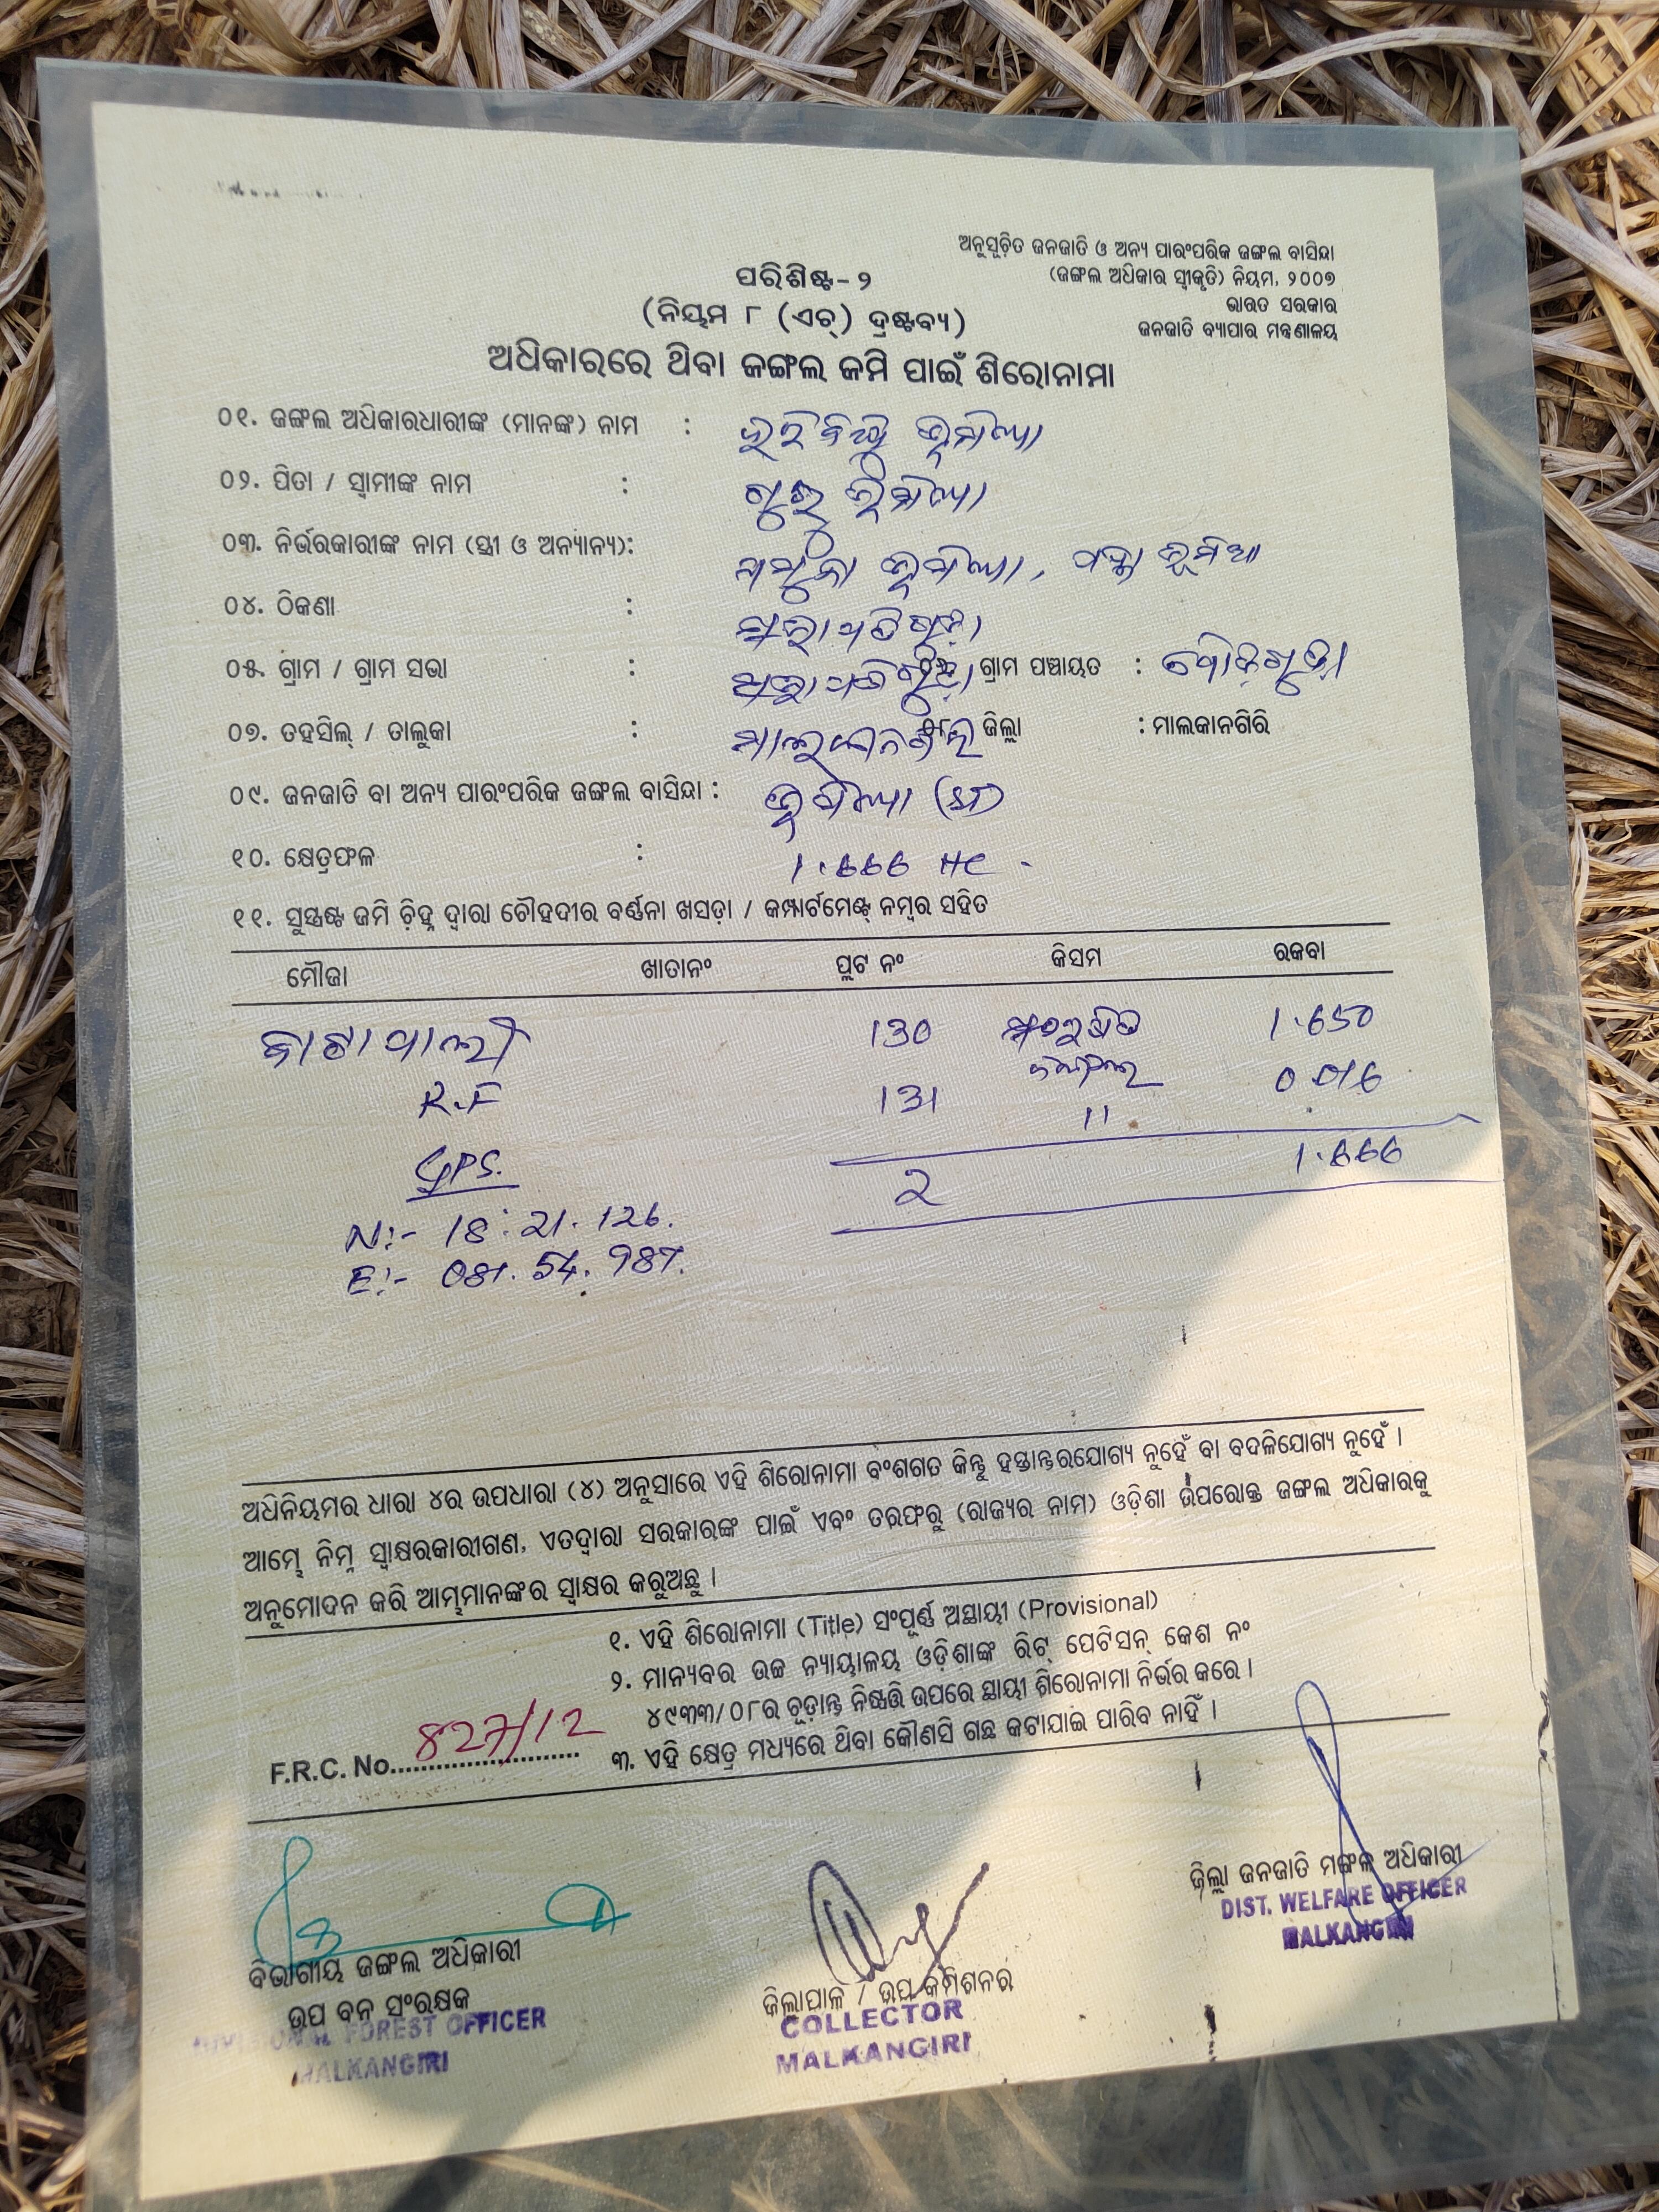 ଅନୁସୂଚିତ ଜନଜାତି ଓ ଅନ୍ୟ ପାରଂପରିକ ଜଙ୍ଗଲ ବାସିନ୍ଦା
(ଜଙ୍ଗଲ ଅଧିକାର ସ୍ୱୀକୃତି) ନିୟମ, ୨୦୦୭
ଭାରତ ସରକାର
ଜନଜାତି ବ୍ୟାପାର ମନ୍ତ୍ରଣାଳୟ
ପରିଶିଷ୍ଟ-୨
(ନିୟମ ୮ (ଏଚ୍) ଦ୍ରଷ୍ଟବ୍ୟ)
ଅଧିକାରରେ ଥିବା ଜଙ୍ଗଲ ଜମି ପାଇଁ ଶିରୋନାମା
୦୧. ଜଙ୍ଗଲ ଅଧିକାରଧାରୀଙ୍କ (ମାନଙ୍କ) ନାମ : ଭୂମିଆ
୦୨. ପିତା / ସ୍ୱାମୀଙ୍କ ନାମ : ଭୂମିଆ
୦୩. ନିର୍ଭରକାରୀଙ୍କ ନାମ (ସ୍ତ୍ରୀ ଓ ଅନ୍ୟାନ୍ୟ): ଭୂମିଆ, ଭୂମିଆ
୦୪. ଠିକଣା :
୦୫. ଗ୍ରାମ / ଗ୍ରାମ ସଭା : ଗ୍ରାମ ପଞ୍ଚାୟତ :
୦୭. ତହସିଲ୍ / ତାଲୁକା : ମାଲକାନଗିରି ୦୮. ଜିଲ୍ଲା : ମାଲକାନଗିରି
୦୯. ଜନଜାତି ବା ଅନ୍ୟ ପାରଂପରିକ ଜଙ୍ଗଲ ବାସିନ୍ଦା : ଭୂମିଆ
୧୦. କ୍ଷେତ୍ରଫଳ : 1.666 HC
୧୧. ସୁସ୍ପଷ୍ଟ ଜମି ଚିହ୍ନ ଦ୍ୱାରା ଚୌହଦୀର ବର୍ଣ୍ଣନା ଖସଡ଼ା / କମ୍ପାର୍ଟମେଣ୍ଟ୍ ନମ୍ବର ସହିତ
ମୌଜା ଖାତାନଂ ପ୍ଲଟ ନଂ କିସମ ରକବା
130 ସଂରକ୍ଷିତ 1.650
ଜଙ୍ଗଲ
R.F 131 " 0.016
GPS. 2 1.666
N:- 18:21.126.
E:- 081.54.987.
ଅଧିନିୟମର ଧାରା ୪ର ଉପଧାରା (୪) ଅନୁସାରେ ଏହି ଶିରୋନାମା ବଂଶଗତ କିନ୍ତୁ ହସ୍ତାନ୍ତରଯୋଗ୍ୟ ନୁହେଁ ବା ବଦଳିଯୋଗ୍ୟ ନୁହେଁ ।
ଆମ୍ଭେ ନିମ୍ନ ସ୍ୱାକ୍ଷରକାରୀଗଣ, ଏତଦ୍ୱାରା ସରକାରଙ୍କ ପାଇଁ ଏବଂ ତରଫରୁ (ରାଜ୍ୟର ନାମ) ଓଡ଼ିଶା ଉପରୋକ୍ତ ଜଙ୍ଗଲ ଅଧିକାରକୁ
ଅନୁମୋଦନ କରି ଆମ୍ଭମାନଙ୍କର ସ୍ୱାକ୍ଷର କରୁଅଛୁ ।
୧. ଏହି ଶିରୋନାମା (Title) ସଂପୂର୍ଣ୍ଣ ଅସ୍ଥାୟୀ (Provisional)
୨. ମାନ୍ୟବର ଉଚ୍ଚ ନ୍ୟାୟାଳୟ ଓଡ଼ିଶାଙ୍କ ରିଟ୍ ପେଟିସନ୍ କେଶ ନଂ
୪୯୩୩/୦୮ର ଚୂଡ଼ାନ୍ତ ନିଷ୍ପତ୍ତି ଉପରେ ସ୍ଥାୟୀ ଶିରୋନାମା ନିର୍ଭର କରେ ।
୩. ଏହି କ୍ଷେତ୍ର ମଧ୍ୟରେ ଥିବା କୌଣସି ଗଛ କଟାଯାଇ ପାରିବ ନାହିଁ ।
F.R.C. No. 827/12
ବିଭାଗୀୟ ଜଙ୍ଗଲ ଅଧିକାରୀ
ଉପ ବନ ସଂରକ୍ଷକ
DIVISIONAL FOREST OFFICER
MALKANGIRI
ଜିଲ୍ଲାପାଳ / ଉପ କମିଶନର
COLLECTOR
MALKANGIRI
ଜିଲ୍ଲା ଜନଜାତି ମଙ୍ଗଳ ଅଧିକାରୀ
DIST. WELFARE OFFICER
MALKANGIRI